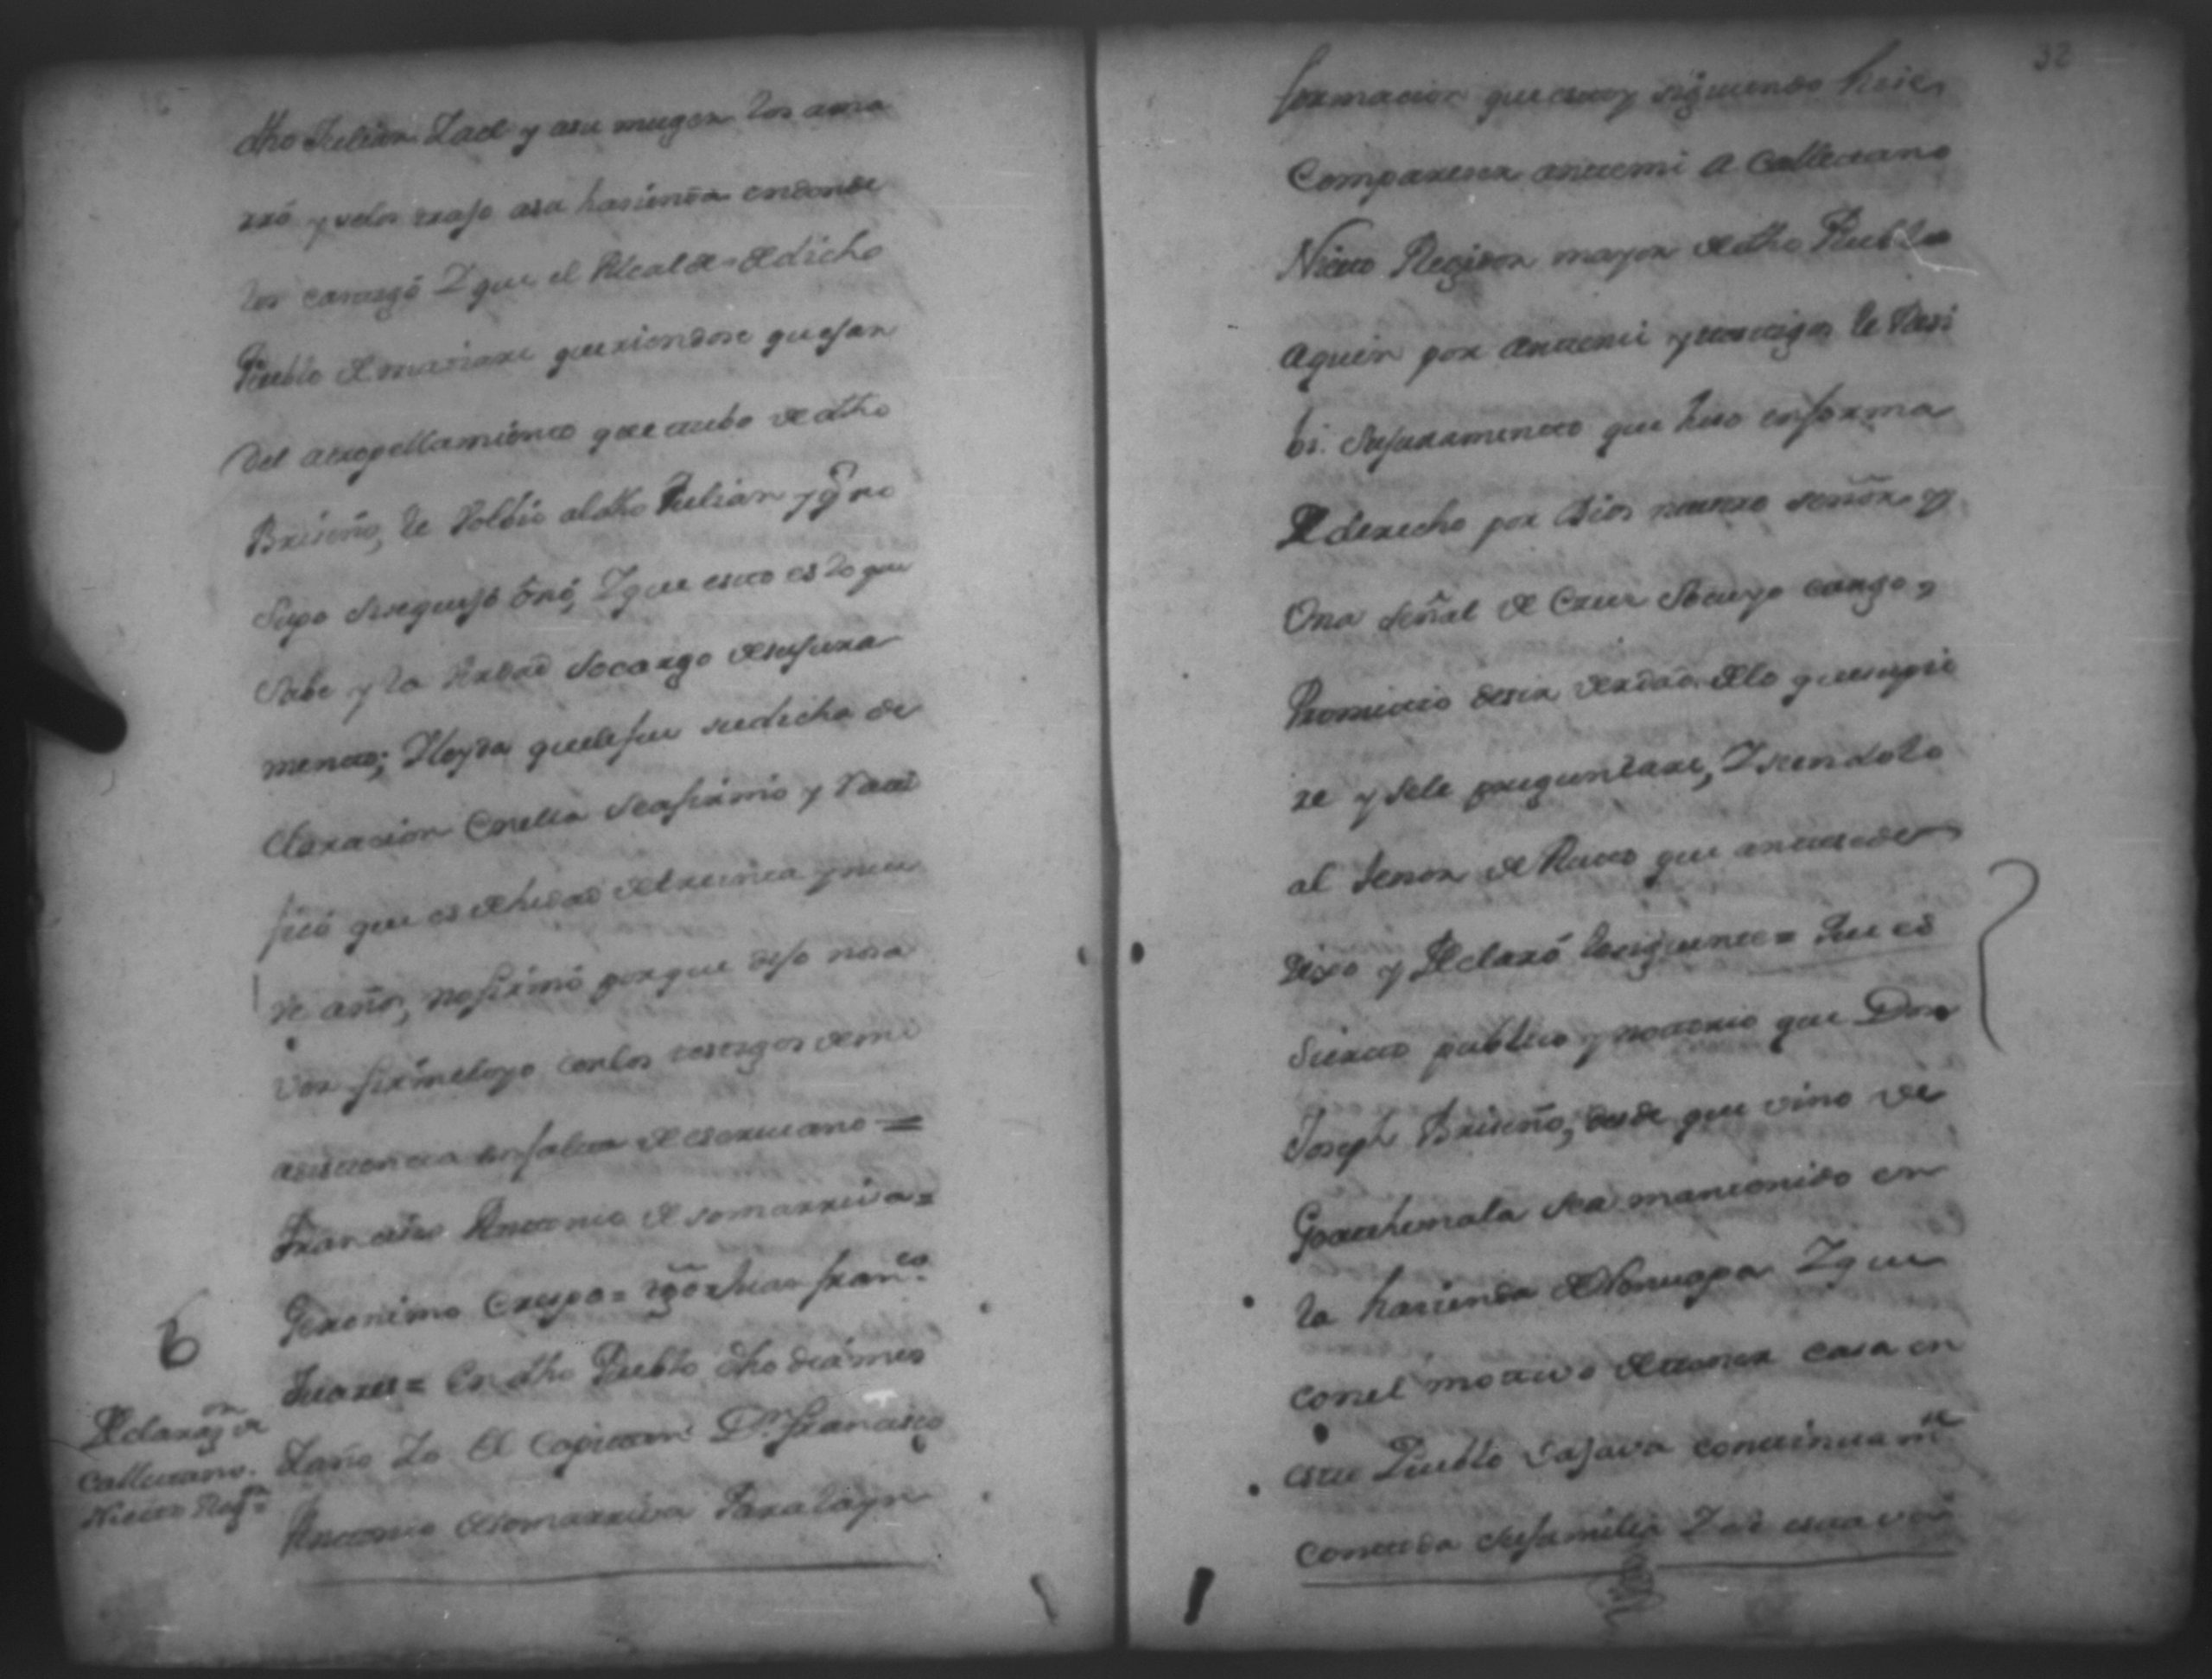 dho Julian Zael y asu muger los ama
rró y selos trajo asu hasienda endonde
los castigó Y que el Alcalde de dicho
Pueblo de queriendose quejar
del atropellamiento que tubo de dho
Briseño, le bolbio aldho Julian y q̃ no
Supo sisequejó õ nó, Y que esto es lo que
Sabe y la berdad socargo desujura
mento; Y leyda quelefue sudicho de
claracion enella seafirmó y ratí
ficó que es de hedad de treinta y nue
ve años, nofirmó porque dijo nosa
ver firmeloyo conlos testigos demi
asistencia enfalta de escriuano =
Francisco Antonio de somarriva =
Geronimo Crespo = tgõ = Juan franco.
Juares = En dho Pueblo dho dia mes
Yaño Yo El Capitan Dn. Francisco
Antonio desomarriva Para layn
6
Declaraz.on de
Calletano.
Nieto Regr.
32
formacion que estoy siguiendo hise
Comparecer antemi a Calletano
Nieto Regidor mayor de dho Pueblo
aquien por antemi y testigos le Resi
bi. Sujuramento que hiso enforma
De derecho por Dios nuestro señor y
Una señal de Cruz Socuyo cargo
Prometio desir verdad delo quesupie
re y sele preguntare, Y siendolo
al tenor de Auto que antesede
Dixo y Declaró losiguiente = Que es
Sierto publico y notorio que Don
Joseph Briseño, desde que vino de
Goathemala sea mantenido en
la hasienda de Y que
conel motivo detener casa en
este Pueblo vajava continuamte
contoda sufamilia Y ad estava